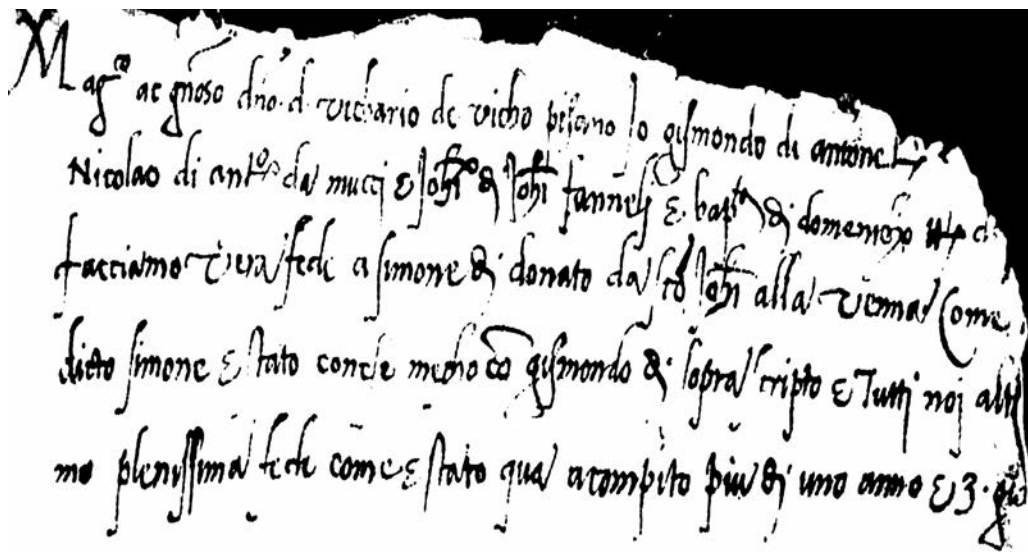 Mag.co ac gnoso dno. d. vichario de vicho pisano Io gismondo di antone
Nicolao di ant.o da mucci & Joh & Joh fannelj & bap.ta di domenicho di
facciamo vera fede a simone di donato da sco Joh alla venna Come
dicto simone e stato con me cō gismondo di sopra scripto e Tuttj noj altr
mo plenissima fede come e stato qua a compito piu dj uno anno e 3.